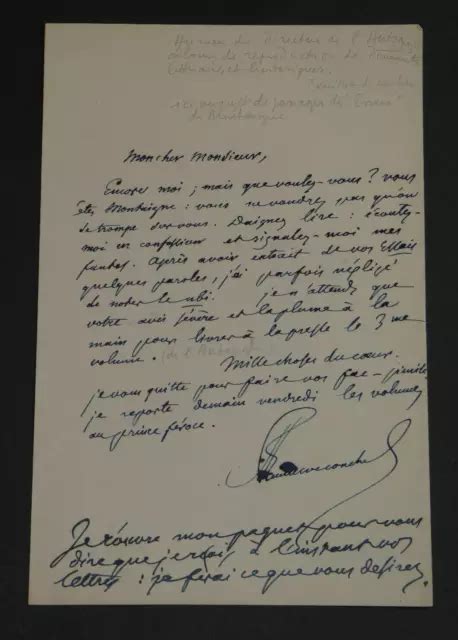 du Directeur de l'
de reproduction de documents
littéraires et historiques.
ici au sujet de passages des "Essais"
de Montaigne
Mon cher Monsieur,
Encore moi ; mais que voulez-vous ? vous
êtes Montaigne : vous ne voudrez pas qu'on
se trompe sur vous. Daignez lire : écoutez-
moi en confesseur et signalez-moi mes
fautes. Après avoir extrait de vos Essais
quelques paroles, j'ai parfois négligé
de noter le ubi. Je n'attends que
votre avis sévère et la plume à la
main pour livrer à la presse le 3me
volume.
(de l'
Mille choses du coeur.
je vous quitte pour faire vos fac-simile
je reporte demain vendredi les volumes
au prince féroce.
Je rouvre mon paquet pour vous
dire que je reçois à l'instant vos
lettres : je ferai ce que vous désirez.